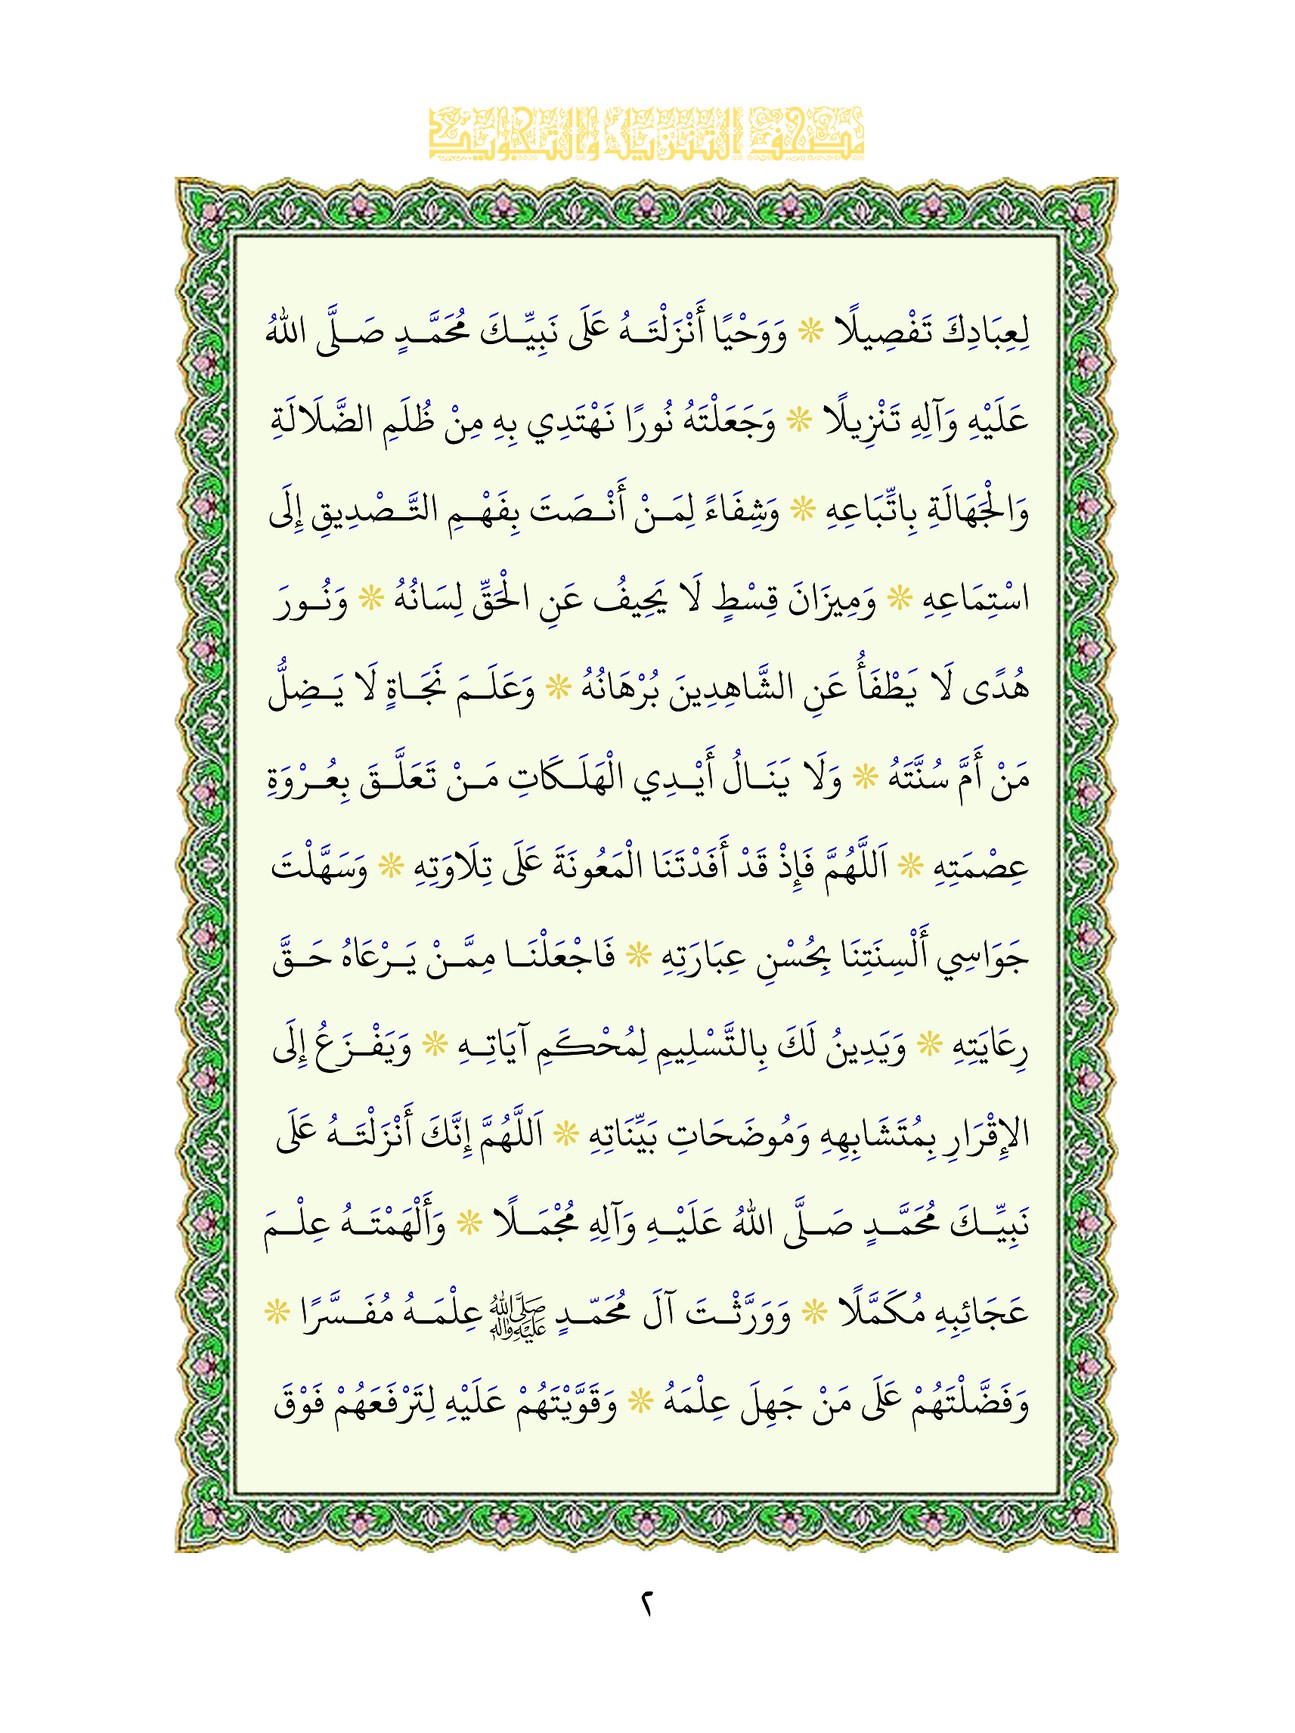 مصحف التنزيل والتجويد
لِعِبَادِكَ تَفْصِيلًا ❊ وَوَحْيًا أَنْزَلْتَهُ عَلَى نَبِيِّكَ مُحَمَّدٍ صَلَّى اللهُ
عَلَيْهِ وَآلِهِ تَنْزِيلًا ❊ وَجَعَلْتَهُ نُورًا نَهْتَدِي بِهِ مِنْ ظُلَمِ الضَّلَالَةِ
وَالْجَهَالَةِ بِاتِّبَاعِهِ ❊ وَشِفَاءً لِمَنْ أَنْصَتَ بِفَهْمِ التَّصْدِيقِ إِلَى
اسْتِمَاعِهِ ❊ وَمِيزَانَ قِسْطٍ لَا يَحِيفُ عَنِ الْحَقِّ لِسَانُهُ ❊ وَنُورَ
هُدًى لَا يَطْفَأُ عَنِ الشَّاهِدِينَ بُرْهَانُهُ ❊ وَعَلَمَ نَجَاةٍ لَا يَضِلُّ
مَنْ أَمَّ سُنَّتَهُ ❊ وَلَا يَنَالُ أَيْدِي الْهَلَكَاتِ مَنْ تَعَلَّقَ بِعُرْوَةِ
عِصْمَتِهِ ❊ اَللَّهُمَّ فَإِذْ قَدْ أَفَدْتَنَا الْمَعُونَةَ عَلَى تِلَاوَتِهِ ❊ وَسَهَّلْتَ
جَوَاسِي أَلْسِنَتِنَا بِحُسْنِ عِبَارَتِهِ ❊ فَاجْعَلْنَا مِمَّنْ يَرْعَاهُ حَقَّ
رِعَايَتِهِ ❊ وَيَدِينُ لَكَ بِالتَّسْلِيمِ لِمُحْكَمِ آيَاتِهِ ❊ وَيَفْزَعُ إِلَى
الإِقْرَارِ بِمُتَشَابِهِهِ وَمُوضَحَاتِ بَيِّنَاتِهِ ❊ اَللَّهُمَّ إِنَّكَ أَنْزَلْتَهُ عَلَى
نَبِيِّكَ مُحَمَّدٍ صَلَّى اللهُ عَلَيْهِ وَآلِهِ مُجْمَلًا ❊ وَأَلْهَمْتَهُ عِلْمَ
عَجَائِبِهِ مُكَمَّلًا ❊ وَوَرَّثْتَ آلَ مُحَمّدٍ صَلَّى اللهُ عَلَيْهِ وَآلِهِ عِلْمَهُ مُفَسَّرًا ❊
وَفَضَّلْتَهُمْ عَلَى مَنْ جَهِلَ عِلْمَهُ ❊ وَقَوَّيْتَهُمْ عَلَيْهِ لِتَرْفَعَهُمْ فَوْقَ
٢